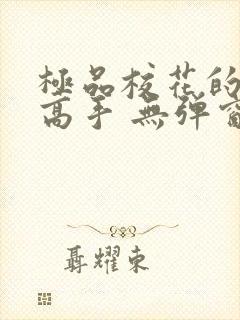 極品校花的
高手 無彈窗
聶耀東